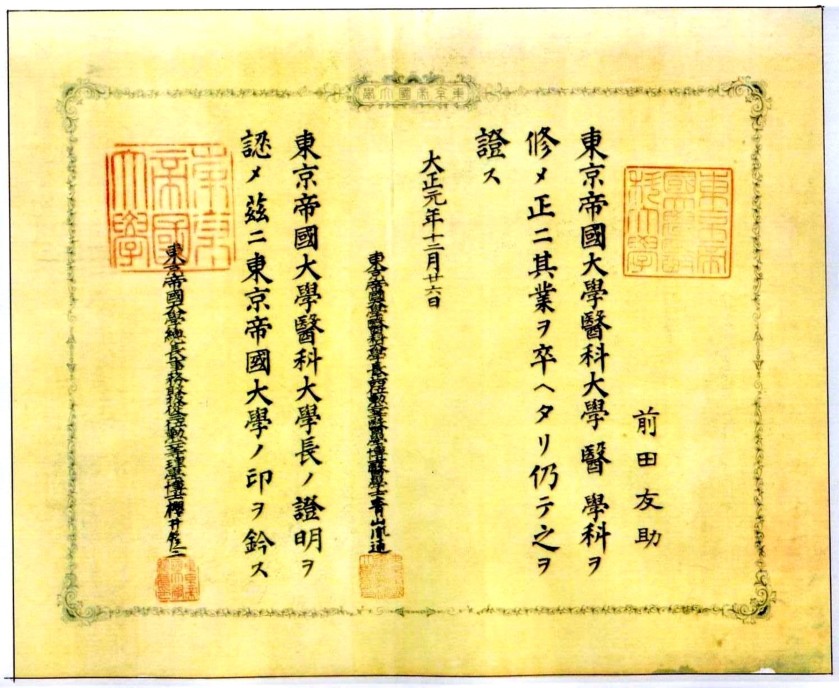 東京帝國大學
前田友助
東京帝國大學醫科大學醫學科ヲ
修メ正ニ其業ヲ卒ヘタリ仍テ之ヲ
證ス
大正元年十二月廿六日
東京帝國大學醫科大學長 醫學博士 青山胤通
東京帝國大學醫科大學長ノ證明ヲ
認メ茲ニ東京帝國大學ノ印ヲ鈐ス
東京帝國大學總長事務取扱 理學博士櫻井錠二
東京帝國大學